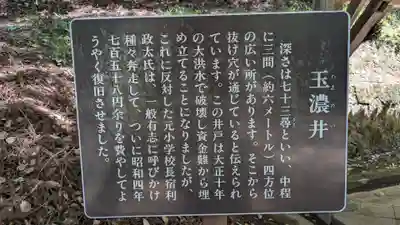 玉濃井
深さは七十三尋といい、中程
に三間（約六メートル）四方位
の広い所があります。そこから
抜け穴が通じていると伝えられ
ています。この井戸は大正十年
の大洪水で破壊し資金難から埋
め立てることになりましたが、
これに反対した元小学校長宿利
政太氏は、一般有志に呼びかけ
種々奔走して、ついに昭和四年
七百五十八円余りを費やしてよ
うやく復旧させました。